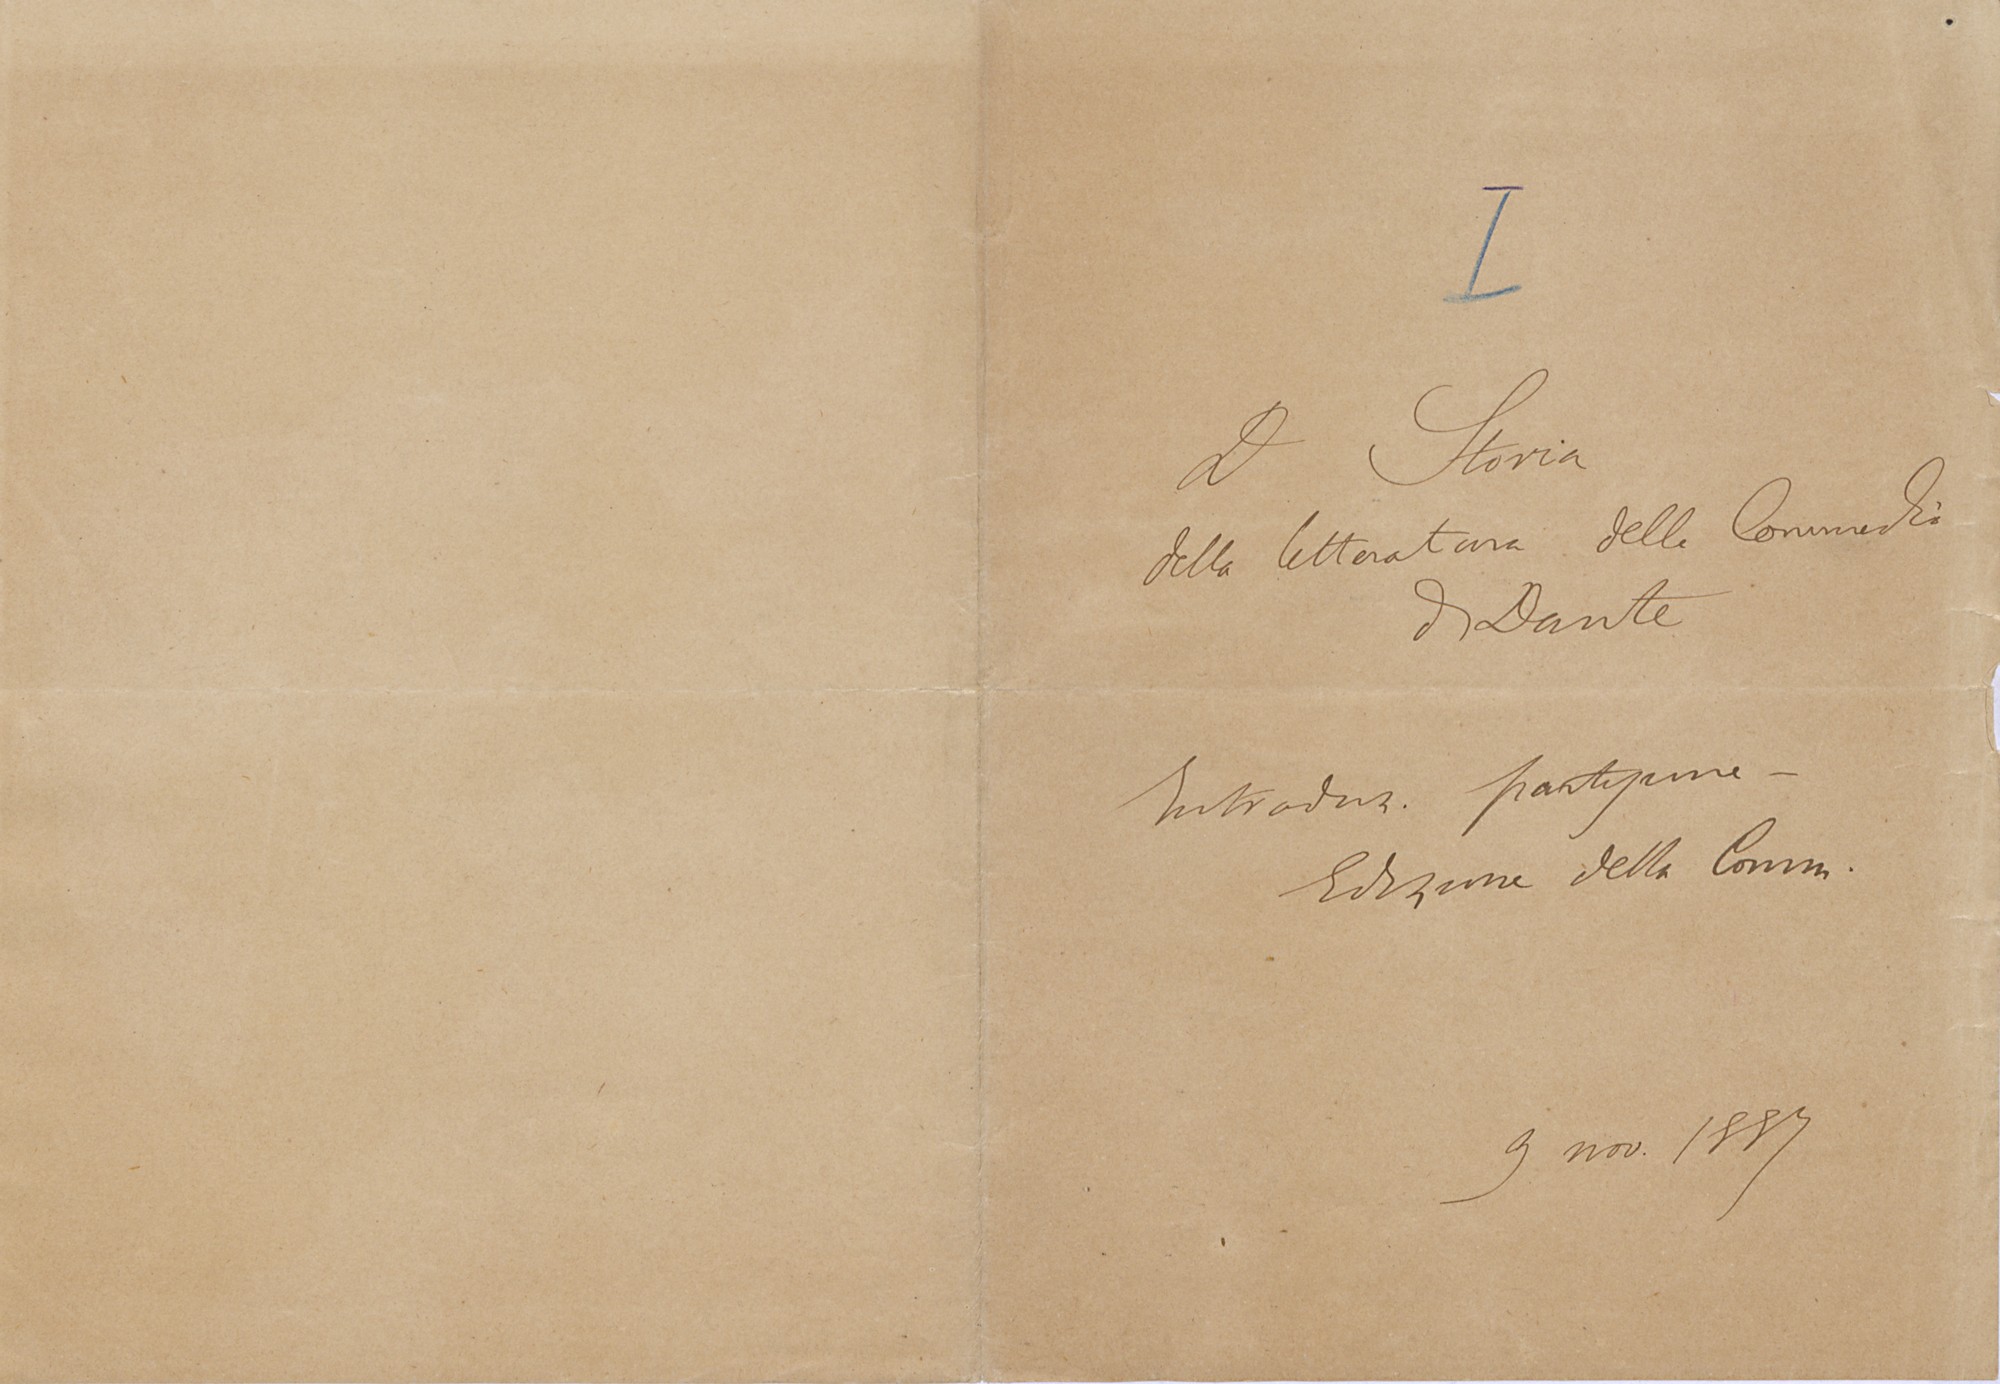 I
D Storia
della letteratura della Commedia
di Dante
Introduz. partizione –
Edizione della Comm.
9 nov. 1887